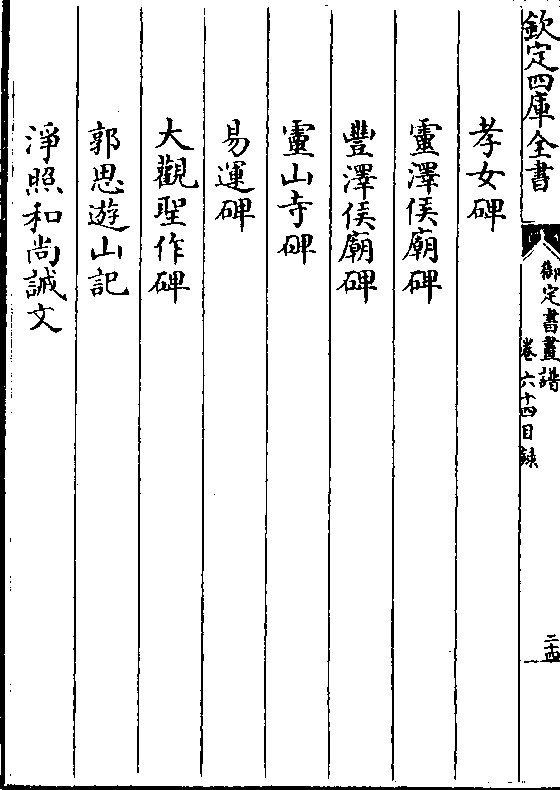 欽定四庫全書
御定書畫譜
卷六十四目錄
二十四
孝女碑
靈澤侯廟碑
豐澤侯廟碑
靈山寺碑
易運碑
大觀聖作碑
郭思遊山記
淨照和尚誡文